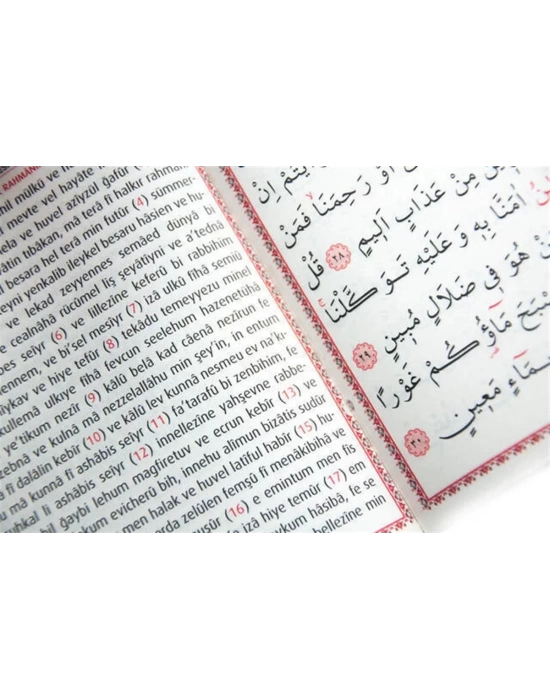 RAHMANİ
mil mülkü ve
meyte vel hayâte
ve huvel azîyzul gafûr
tıbâkan, mâ terâ fî halkır rahmân
besara hel terâ min futûr (4) sümmer-
yenkalib ileykel besaru hâsien ve hu-
ve lekad zeyyennes semâed dünyâ bi
cealnâhâ rücûmel liş şeyâtîyni ve a'tednâ
seîyr (6) ve lillezîne keferû bi rabbihim
ve bi'sel mesîyr (7) izâ ulkû fîhâ semiû
ve hiye tefûr (8) tekâdu temeyyezu minel
ulkıye fîhâ fevcun seelehum hazenetühâ
e'tikum nezîr (9) kâlû belâ kad câenâ nezîrun fe
zebnâ ve kulnâ mâ nezzelallâhu min şey'in, in entum
fî dalâlin kebîr (10) ve kâlû lev kunnâ nesmeu ev na'k-
mâ kunnâ fî ashâbis seîyr (11) fa'tarafû bi zenbihim, fe
li ashâbis seîyr (12) innellezîne yahşevne rabbe-
bil ğaybi lehum mağfiretuv ve ecrun kebîr (13) ve
evicherû bih, innehu alîmun bizâtis sudûr
men halak ve huvel latîful habîr (15) hu-
arda zelûlen femşû fî menâkibihâ ve
nuşûr (16) e emintum men fis
izâ hiye temûr (17) em
aykum hâsıbâ, fe se
bellezîne min
اَوْ رَحِمَنَا فَمَنْ
مِنْ عَذَابٍ اَلِيمٍ ٢٨ قُلْ
اٰمَنَّا بِهِ وَ عَلَيْهِ تَوَكَّلْنَا
هُوَ فِي ضَلَالٍ مُبِينٍ ٢٩
مَاؤُكُمْ غَوْرًا
مَعِينٍ ٣٠